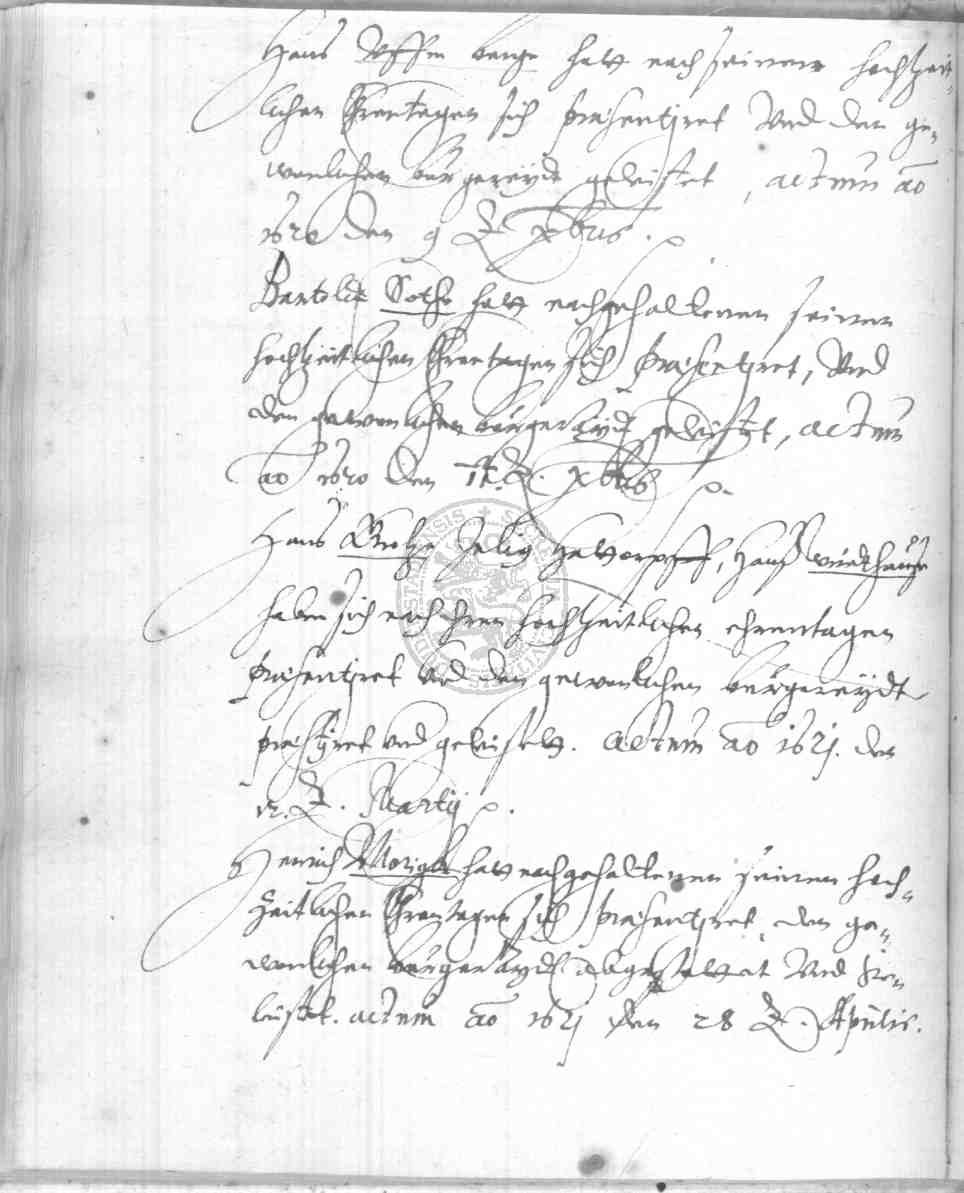 Hans Uffm berge hatt nach seinem hochzeit-
lichen Ehrentagen sich praesentiret Und den ge-
wonlichen bürgereydt geleistet, actum ao
1620 den 9 Xbris.
Bartoldt Sothe hatt nachgehaltenen seinen
hochzeitlichen Ehrentagen sich praesentiret, Und
den gewonlichen bürgereydt geleistet, actum
ao 1620 den Xbris
Hans Hanß
haben sich nach ihren hochzeitlichen ehrentagen
praesentiret und den gewonlichen bürgereydt
praestiret und geleistett. Actum ao 1621. den
12. Martij.
Henrich hatt nachgehaltenen seinen hoch-
zeitlichen Ehrentagen sich praesentiret, den ge-
wonlichen bürgereydt abgestattet Und
leistet. actum ao 1621 den 28 Aprilis.